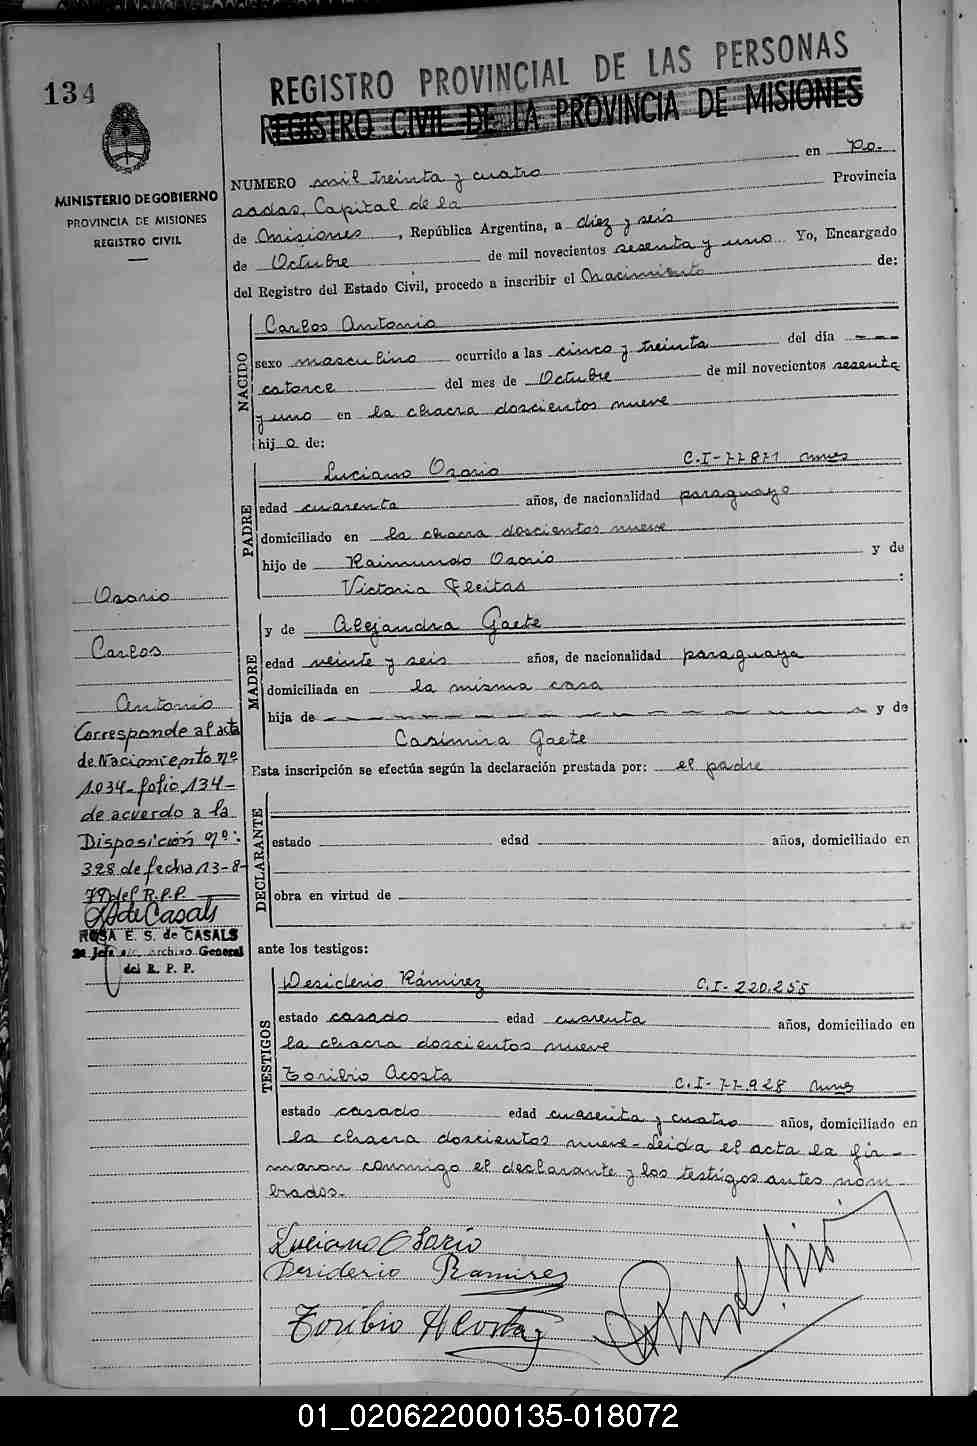 134
REGISTRO PROVINCIAL DE LAS PERSONAS
REGISTRO CIVIL DE LA PROVINCIA DE MISIONES
MINISTERIO DE GOBIERNO
PROVINCIA DE MISIONES
REGISTRO CIVIL
NUMERO mil treinta y cuatro en Po-
sadas, Capital de la Provincia
de Misiones, República Argentina, a diez y seis
de Octubre de mil novecientos sesenta y uno Yo, Encargado
del Registro del Estado Civil, procedo a inscribir el Nacimiento de:
NACIDO
Carlos Antonio
sexo masculino ocurrido a las cinco y treinta del día ---
catorce del mes de Octubre de mil novecientos sesenta
y uno en la chacra doscientos nueve
hij o de:
PADRE
Luciano Osorio C.I-77871 mnes
edad cuarenta años, de nacionalidad paraguayo
domiciliado en la chacra doscientos nueve
hijo de Raimundo Osorio y de
Victoria Fleitas :
MADRE
y de Alejandra Gaete
edad veinte y seis años, de nacionalidad paraguaya
domiciliada en la misma casa
hija de - - - - - - - - - - - - y de
Casimira Gaete
Esta inscripción se efectúa según la declaración prestada por: el padre
DECLARANTE
estado edad años, domiciliado en
obra en virtud de
ante los testigos:
TESTIGOS
Desiderio Rámirez C.I-220.255
estado casado edad cuarenta años, domiciliado en
la chacra doscientos nueve
Toribio Acosta C.I-77928 mnes
estado casado edad cuarenta y cuatro años, domiciliado en
la chacra doscientos nueve-Leida el acta la fir-
maron conmigo el declarante y los testigos antes nom-
brados.-
Luciano Osorio
Desiderio Ramires
Toribio Acosta
Osorio
Carlos
Antonio
Corresponde al acta
de Nacimiento nº
1.034-folio 134-
de acuerdo a la
Disposición nº:
328 de fecha 13-8-
79 del R.P.P.
de Casals
ROSA E. S. de CASALS
2a Jefe a/c. Archivo General
del R. P. P.
01_020622000135-018072